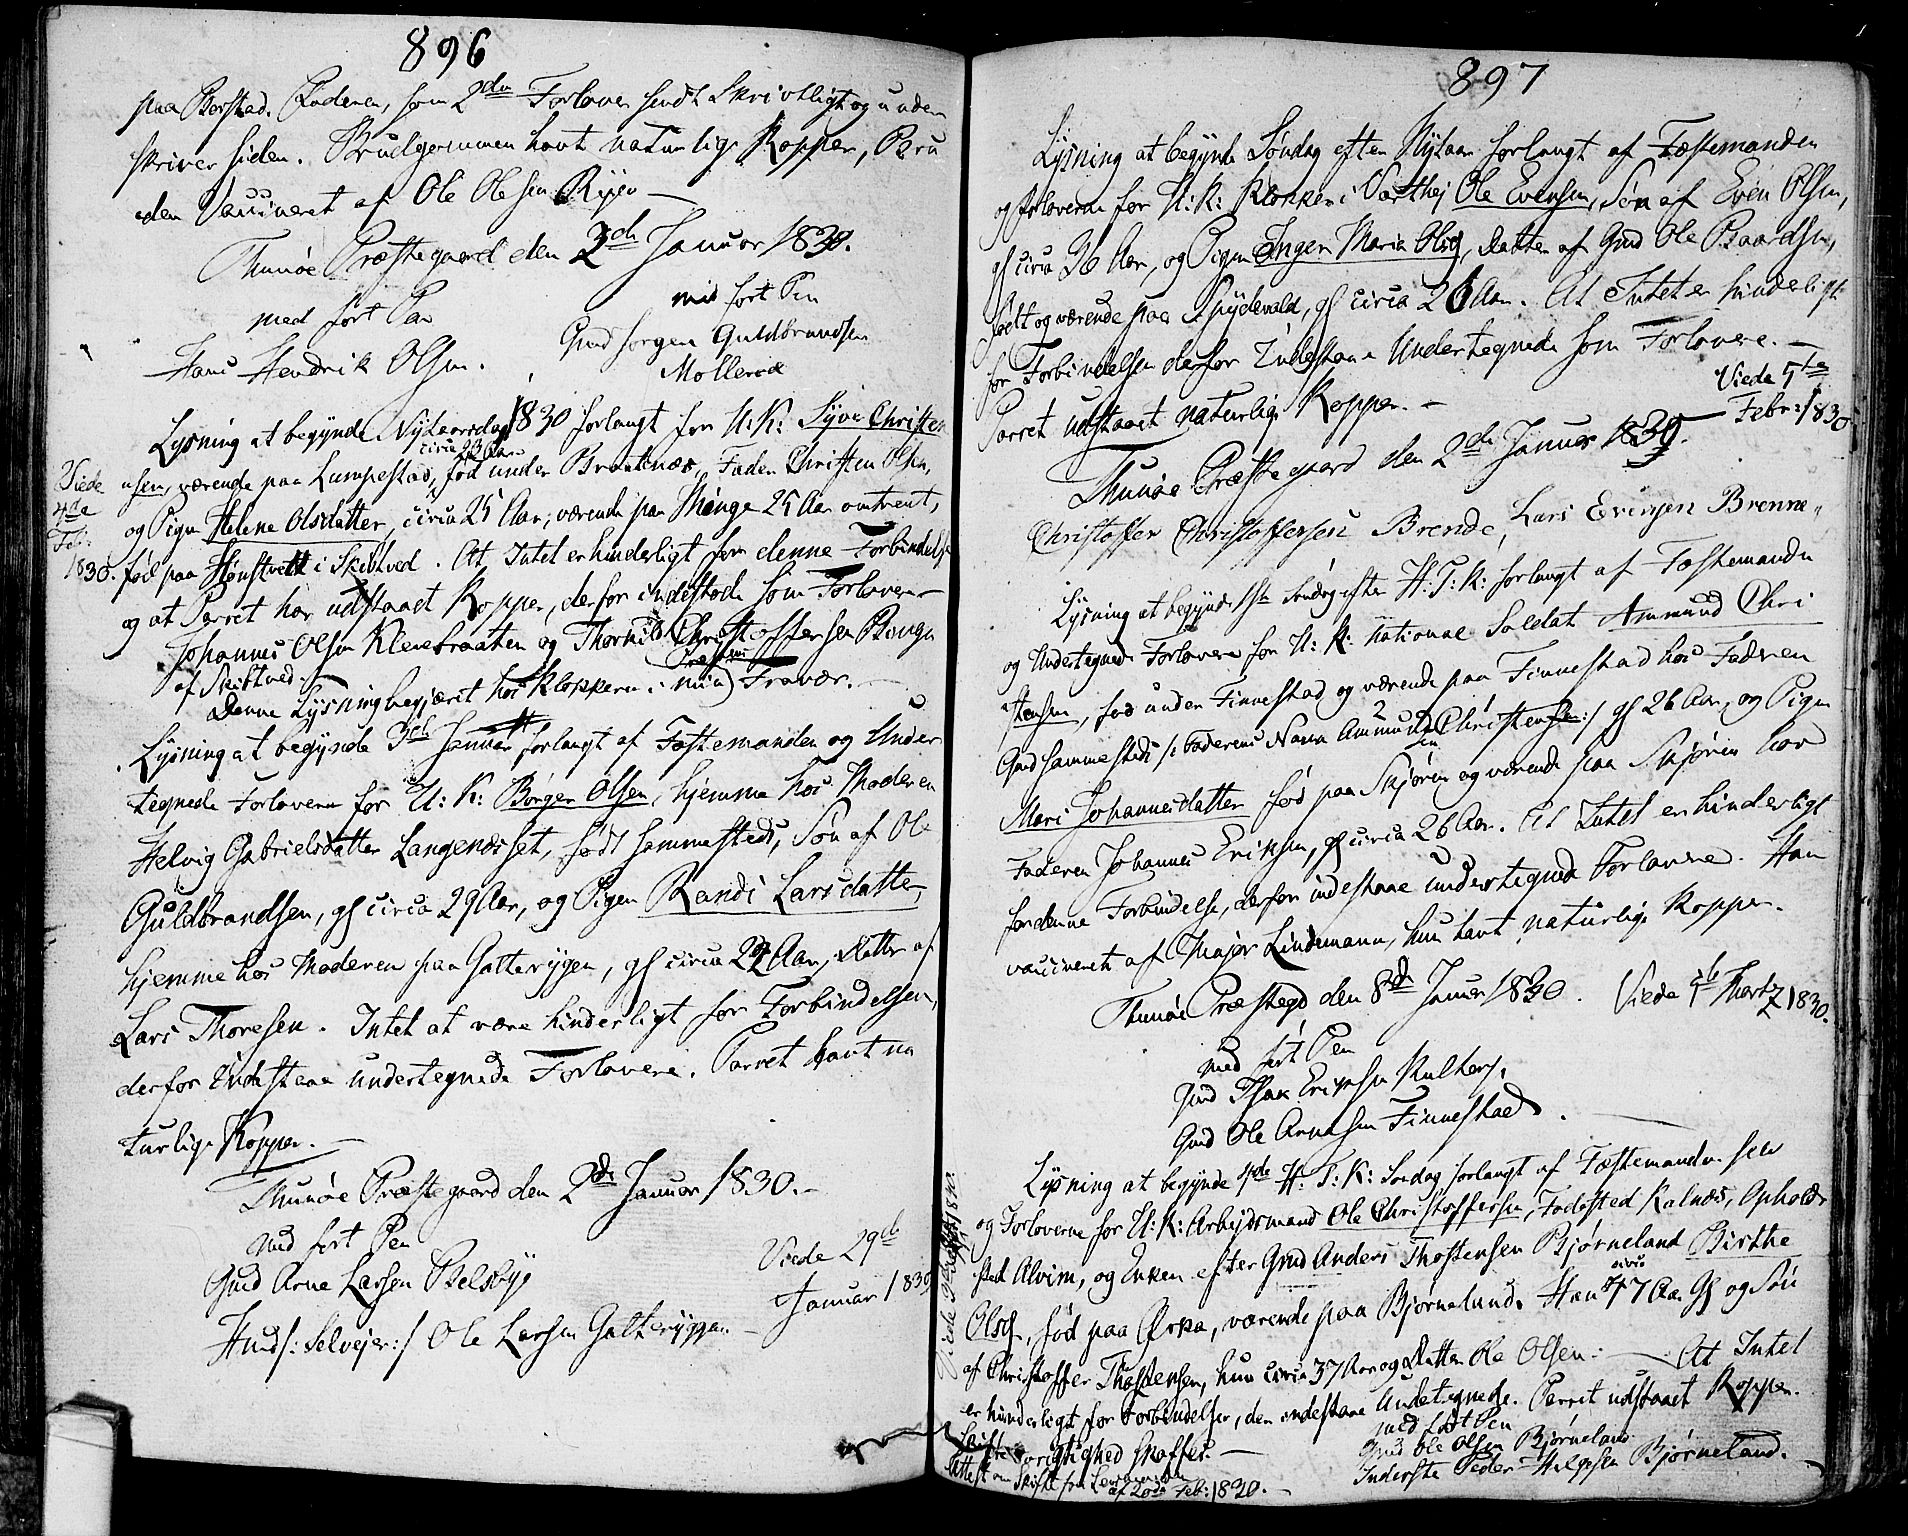 896
paa Borstad. Faderen, som 2den Forlover sendt Skrivtligt og under
skriver siden. Brudgommen havt naturlige Kopper, Bru
den Vaccineret af Ole Olesen Ryen —
Thunøe Præstegaard den 3de Januar 1830.
med ført Pen
Hans Hendrik Olsen.
med ført Pen
Gmd Jørgen Guldbrandsen
Møllerød
Lysning at begynde Nytaarsdag 1830 forlangt for U: K: Syver Christen
circa 23 Aar
usen, værende paa Lumpestad, fød under Braatenæs, Fader Christen Olsen,
og Pigen Helene Olsdatter, circa 25 Aar, værende paa Minge 25 Aar omtrent,
fød paa Hønstvett i Skibtved. At Intet er hinderligt for denne Forbindelse
og at Parret har udstaaet Kopper, derfor indestode som Forlovere
Johannes Olsen Klevebraaten og Thorkild Christoffersen Bonga
af Skibtved. —
Denne Lysning begjæret hos Klokkeren i min Præstens Fravær. —
Viede
4de
Feb:
1830.
Lysning at begynde 3de Januar forlangt af Fæstemanden og Under
tegnede Forlovere for U: K: Børger Olsen, hjemme hos Moderen
Helvig Gabrielsdatter Langenæsset, født sammesteds, Søn af Ole
Guldbrandsen, gl circa 29 Aar, og Pigen Randi Larsdatter,
hjemme hos Moderen paa Galterygen, gl circa 22 Aar, Datter af
Lars Thoresen. Intet at være hinderligt for Forbindelsen,
derfor Indestaae undertegnede Forlovere. Parret havt na
turlige Kopper. —
Thunøe Præstegaard den 2de Januar 1830. —
med ført Pen
Gmd Arne Larsen Belsbye
Huusm: Selvejer:/ Ole Larsen Galteryggen —
Viede 29de
Januar 1830
897
Lysning at begynde Søndag efter Nytaar forlangt af Fæstemanden
og Forloverne for U: K: Klokker i Varthej Ole Evensen, Søn af Even Olsen,
gl circa 36 Aar, og Pigen Inger Maria Olsd, Datter af Gmd Ole Baardsen,
født og værende paa Spydevold, gl circa 26 Aar. At Intet er hinderligt
for Forbindelsen derfor Indestaae Undertegnede som Forlovere. —
Parret udstaaet naturlige Kopper. —
Viede 5te
Febr: 1830
Thunøe Præstegaard den 2de Januar 1830.
Christoffer Christoffersen Brende, Lars Evensen Brenne
Lysning at begynde 1ste Søndag efter H: T: K: forlangt af Fæstemanden
og Undertegnede Forlovere for U: K: National Soldat Ammund Chri
stensen, fød under Finnestad og værende paa Finnestad hos Faderen
Gmd sammesteds /: Faderens Navn Ammund Christensen:/ gl 26 Aar, og Pigen
Mari Johannesdatter fød paa Skjøren og værende paa Skjøren hos
Faderen Johannes Eriksen, gl circa 26 Aar. At Intet er hinderligt
for denne Forbindelse, derfor indestaae undertegnede Forlovere. Han
vaccineret af Major Lindemann, hun havt naturlige Kopper.
Thunøe Præstegd den 8de Januar 1830. Viede Martz 1830.
med ført Pen
Gmd Isak Eriksen
Gmd Ole Arnesen Finnestad. —
Lysning at begynde 4de H: T: K: Søndag forlangt af Fæstemanden selv
og Forloverne for U: K: Arbejdsmand Ole Christoffersen, Fødested Kalnæs, Opholds
sted Alvim, og Enken efter Gmd Anders Thostensen Bjørneland Birthe
Olsd, fød paa Ørka, værende paa Bjørneland. Han circa 47 Aar Gl og Søn
af Christoffer Thostensen, hun circa 37 Aar og Datter Ole Olsen. — At Intet
er hinderligt for Forbindelse, der indestaae Undertegnede. Parret udstaaet Kopper.
Skifte rigtighed skaffes. —
Attest om Skifte fra
af 20de Feb: 1830. —
med ført Pen
Gmd Ole Olsen Bjørneland
Inderste Peder Helgesen Bjørneland.